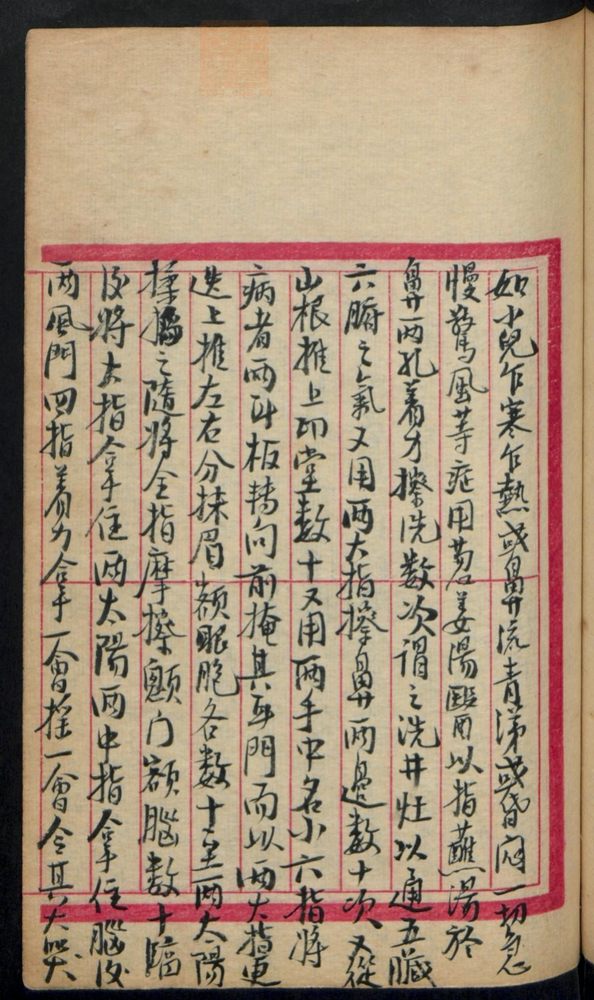 如小兒乍寒乍熱或鼻流青涕或昏悶一切急
慢驚風等症用葱姜湯醫用以指蘸湯於
鼻兩孔着力擦洗数次謂之洗井灶以通五臟
六腑之氣又用兩大指擦鼻兩邊数十次又從
山根推上印堂数十又用兩手中名小六指將
病者兩耳板轉向前掩其耳門而以兩大指更
迭上推左右分抹眉額眼胞各数十至兩太陽
揉搖之隨將全指摩擦顖门額腦数十臨
後將大指拿住兩太陽兩中指拿住腦後
兩風門四指着力拿一會搖一會令其大哭